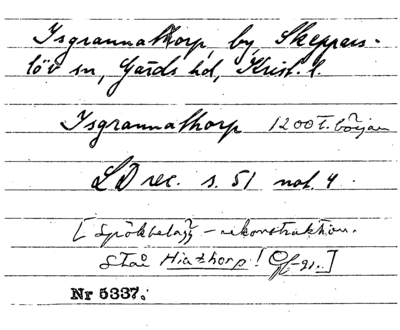 Isgrannathorp, by, Skeppars-
löv sn, Gärds hd, Krist. l.
Isgrannathorp 1200 t. början
LD rec. s. 51 not. 4.
[Spökbelägg – rekonstruktion.
Står Hiazhorp!
Nr 5337.